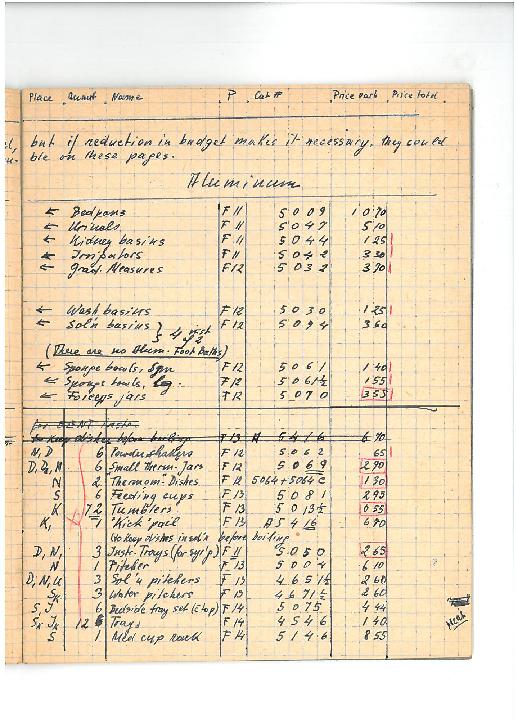 Place Amount Name P Cat# Price each Price total
but if reduction in budget makes it necessary, they could
ble on these pages.
Aluminum
← Bedpans F 11 5009 10 70
← Urinals F 11 5047 5 10
← Kidney basins F 11 5044 1 25
← Irrigators F 11 5042 3 30
← Grad. Measures F 12 5032 3 70
← Wash basins F 12 5030 1 25
← Sol'n basins F 12 5094 3 60
(There are no Alum. Foot Baths)
← Sponge bowls, sm F 12 5061 1 40
← Sponge bowls, lrg. F 12 5061½ 1 55
← Forceps jars F 12 5070 3 55
to keep dishes before boiling F 13 A 5416 6 70
N, D 6 Powder shakers F 12 5062 65
6 Small Therm-Jars F 12 5069 2 90
N 2 Thermom-Dishes F 12 5064+5064C 1 30
S 6 Feeding cups F 13 5081 2 95
K 72 Tumblers F 13 5013½ 0 55
K, 1 "Kick" pail F 13 A 5416 6 70
before boiling
D, N, 3 Instr-Trays (for syr'g) F 11 5050 2 65
N 1 Pitcher F 13 5004 6 10
D, N, U 3 Sol'n pitchers F 13 4651½ 2 60
3 Water pitchers F 13 4671½ 2 60
S, J 6 Bedside tray set F 14 5075 4 44
Trays F 14 4546 1 40
S 1 Med cup rack F 14 5146 8 55